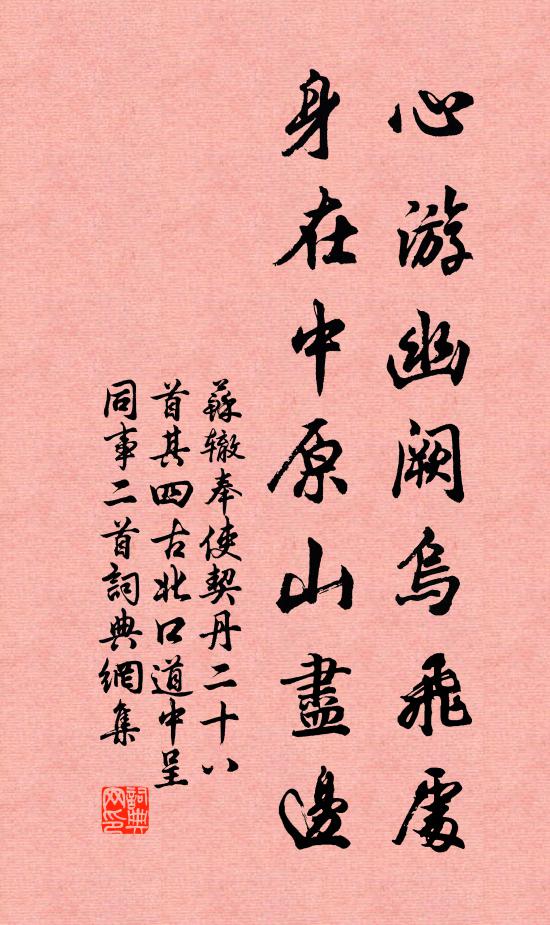 心游幽阙烏飛處
身在中原山盡邊
蘇辙奉使契丹二十八
首其四古北口道中呈
同事二首詞典網集
詞典网印